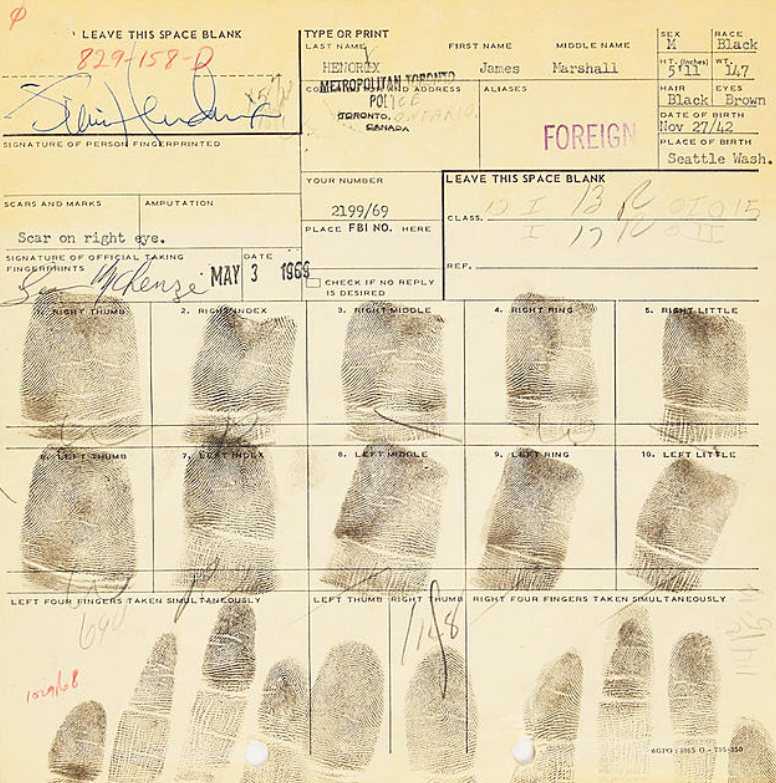 LEAVE THIS SPACE BLANK
829-158-D
SIGNATURE OF PERSON FINGERPRINTED
TYPE OR PRINT
LAST NAME FIRST NAME MIDDLE NAME
HENDRIX James Marshall
SEX RACE
M Black
HT. (Inches) WT.
5'11 147
HAIR EYES
Black Brown
DATE OF BIRTH
Nov 27/42
PLACE OF BIRTH
Seattle Wash.
AND ADDRESS
METROPOLITAN TORONTO
POLICE
TORONTO, ONTARIO,
CANADA
ALIASES
FOREIGN
SCARS AND MARKS AMPUTATION
Scar on right eye.
YOUR NUMBER
2199/69
PLACE FBI NO. HERE
LEAVE THIS SPACE BLANK
CLASS.
REF.
SIGNATURE OF OFFICIAL TAKING
FINGERPRINTS
DATE
MAY 3 1969
CHECK IF NO REPLY
IS DESIRED
1. RIGHT THUMB 2. RIGHT INDEX 3. RIGHT MIDDLE 4. RIGHT RING 5. RIGHT LITTLE
6. LEFT THUMB 7. LEFT INDEX 8. LEFT MIDDLE 9. LEFT RING 10. LEFT LITTLE
LEFT FOUR FINGERS TAKEN SIMULTANEOUSLY LEFT THUMB RIGHT THUMB RIGHT FOUR FINGERS TAKEN SIMULTANEOUSLY